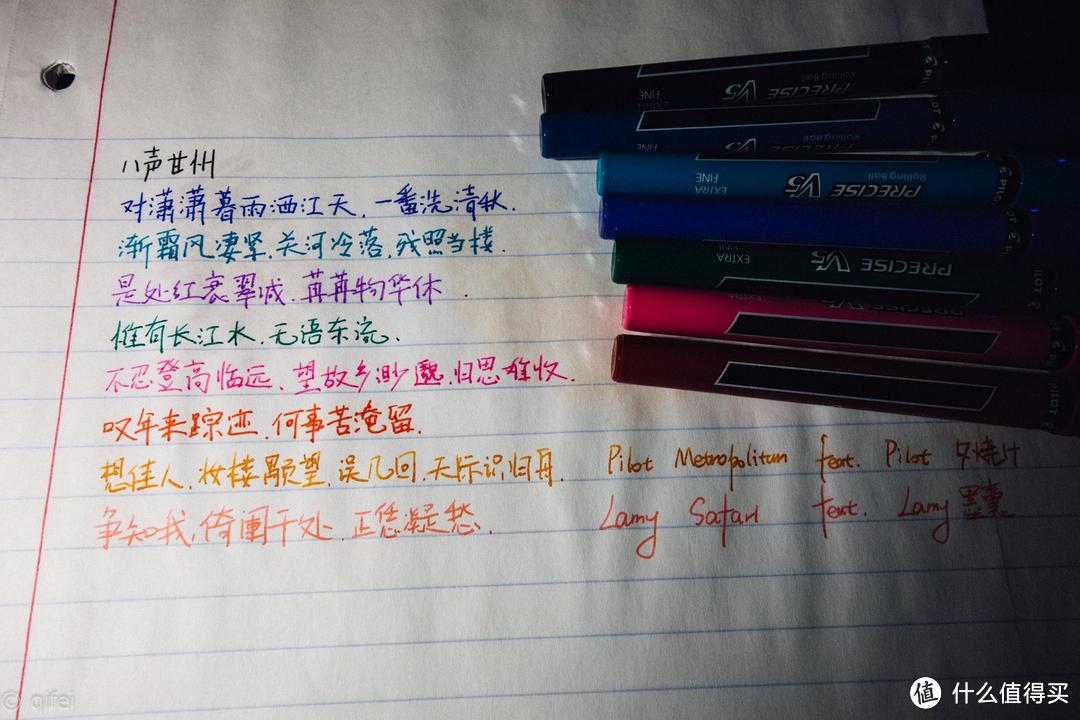 八声甘州
对潇潇暮雨洒江天,一番洗清秋.
渐霜风凄紧,关河冷落,残照当楼.
是处红衰翠减,苒苒物华休.
惟有长江水,无语东流.
不忍登高临远,望故乡渺邈,归思难收.
叹年来踪迹,何事苦淹留.
想佳人,妆楼颙望,误几回,天际识归舟. Pilot Metropolitan feat. Pilot 夕焼け
争知我,倚阑干处,正恁凝愁. Lamy Safari feat. Lamy 墨囊
PILOT PRECISE V5 Rolling Ball EXTRA FINE
PILOT PRECISE V5 Rolling Ball EXTRA FINE
PILOT PRECISE V5 Rolling Ball EXTRA FINE
PILOT PRECISE V5 EXTRA FINE
PILOT PRECISE V5 EXTRA
PILOT
© qifei
值 什么值得买